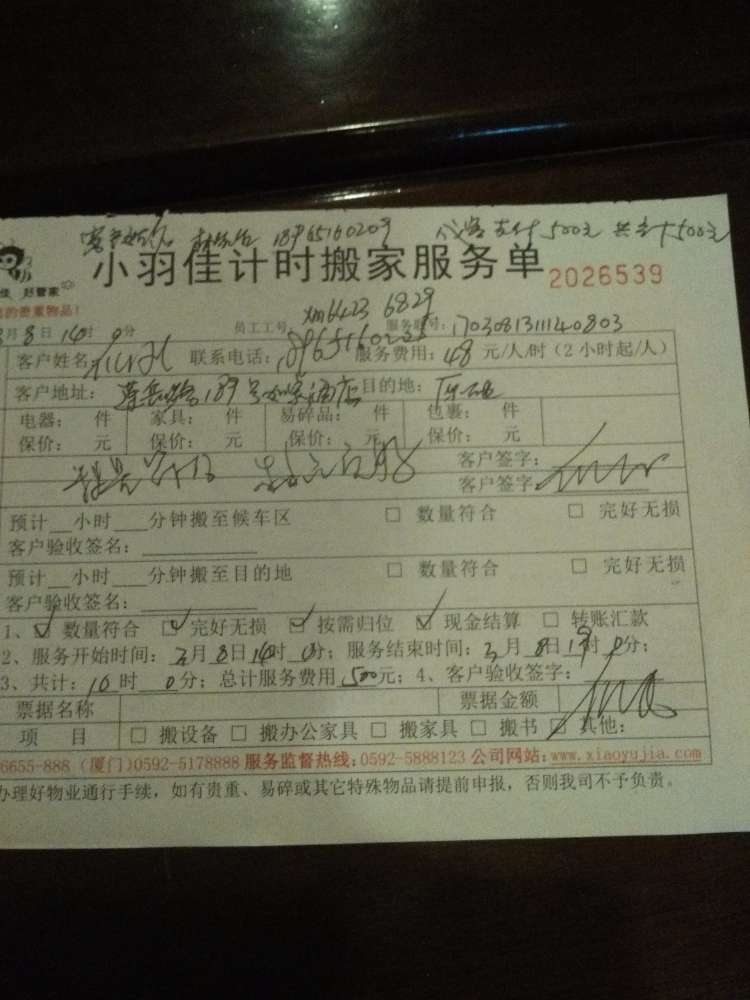 18965160209 代客支付500元 共计500元
小羽佳计时搬家服务单 2026539
佳 好管家
的贵重物品!
xm6423 6829
月8日14时0分 员工工号: 服务单号: 1703081311140803
客户姓名: 联系电话: 服务费用: 48元/人/时(2小时起/人)
客户地址: 189号 酒店 目的地:
电器: 件 家具: 件 易碎品: 件 包裹: 件
保价: 元 保价: 元 保价: 元 保价: 元
客户签字:
客户签字:
预计__小时___分钟搬至候车区 □ 数量符合 □ 完好无损
客户验收签名:
预计__小时___分钟搬至目的地 □ 数量符合 □ 完好无损
客户验收签名:
1、☑ 数量符合 ☑ 完好无损 ☑ 按需归位 ☑ 现金结算 □ 转账汇款
2、服务开始时间: 3月8日14时0分; 服务结束时间: 3月8日19时0分;
3、共计: 10时 0分; 总计服务费用500元; 4、客户验收签字:
票据名称 票据金额
项 目 □ 搬设备 □ 搬办公家具 □ 搬家具 □ 搬书 □ 其他:
6655-888 (厦门)0592-5178888 服务监督热线:0592-5888123 公司网站:www.xiaoyujia.com
办理好物业通行手续,如有贵重、易碎或其它特殊物品请提前申报,否则我司不予负责。